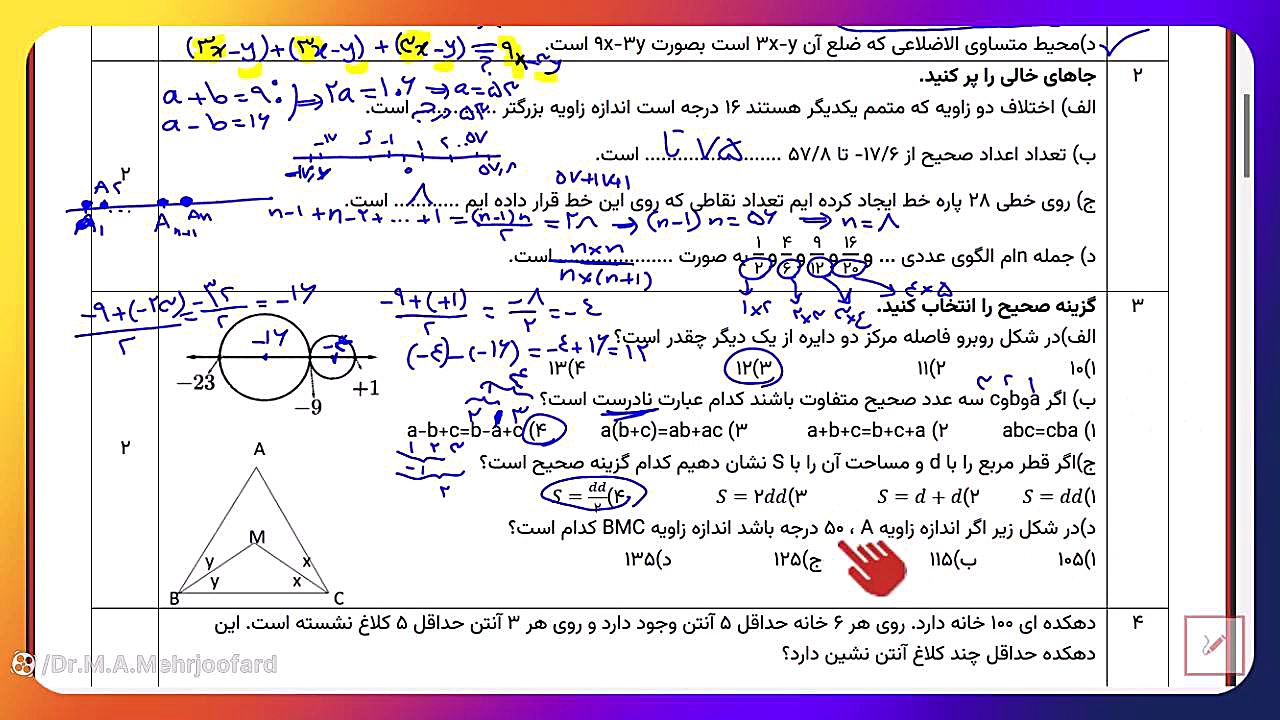 د)محیط متساوی الاضلاعی که ضلع آن ۳x-y است بصورت ۹x-۳y است.
(۳x-y)+(۳x-y)+(۳x-y)=۹x-۳y
?
۲
جاهای خالی را پر کنید.
الف) اختلاف دو زاویه که متمم یکدیگر هستند ۱۶ درجه است اندازه زاویه بزرگتر ...۵۳ درجه... است.
a+b=۹۰
a-b=۱۶
⇒ ۲a=۱۰۶ ⇒ a=۵۳
ب) تعداد اعداد صحیح از ۱۷/۶- تا ۵۷/۸ ...۷۵ تا... است.
۵۷+۱۷+۱
۲
ج) روی خطی ۲۸ پاره خط ایجاد کرده ایم تعداد نقاطی که روی این خط قرار داده ایم ...۸... است.
n-۱+n-۲+...+۱=(n-۱)n/۲=۲۸ → (n-۱)n=۵۶ ⇒ n=۸
A۱ A۲ ... An-۱ An
د) جمله nام الگوی عددی ... و ۱۶/۲۰ و ۹/۱۲ و ۴/۶ و ۱/۲ به صورت ... است.
n×n/n×(n+۱)
۱×۲ ۲×۳ ۳×۴ ۴×۵
۳
گزینه صحیح را انتخاب کنید.
-۹+(-۲۳)/۲=-۳۲/۲=-۱۶
-۹+(+۱)/۲=-۸/۲=-۴
الف)در شکل روبرو فاصله مرکز دو دایره از یک دیگر چقدر است؟
(-۴)-(-۱۶)=-۴+۱۶=۱۲
۱)۱۰ ۲)۱۱ ۳)۱۲ ۴)۱۳
-۱۶ -۴
-23 -9 +1
ب) اگر aوbوc سه عدد صحیح متفاوت باشند کدام عبارت نادرست است؟
۱ ۲ ۳
۱) abc=cba ۲) a+b+c=b+c+a ۳) a(b+c)=ab+ac ۴) a-b+c=b-a+c
۲
ج)اگر قطر مربع را با d و مساحت آن را با S نشان دهیم کدام گزینه صحیح است؟
۱)S = dd ۲)S = d + d ۳)S = ۲dd ۴)S = dd/۲
د)در شکل زیر اگر اندازه زاویه A ، ۵۰ درجه باشد اندازه زاویه BMC کدام است؟
۱)۱۰۵ ب)۱۱۵ ج)۱۲۵ د)۱۳۵
A
M
y x
y x
B C
۴
دهکده ای ۱۰۰ خانه دارد. روی هر ۶ خانه حداقل ۵ آنتن وجود دارد و روی هر ۳ آنتن حداقل ۵ کلاغ نشسته است. این
دهکده حداقل چند کلاغ آنتن نشین دارد؟
/Dr.M.A.Mehrjoofard